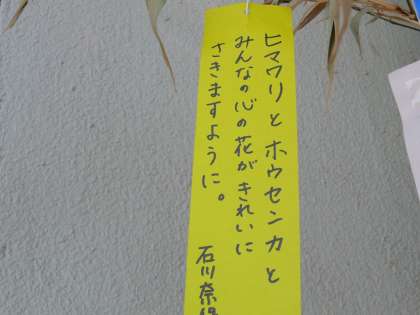 ヒマワリとホウセンカと
みんなの心の花がきれいに
さきますように。
石川奈